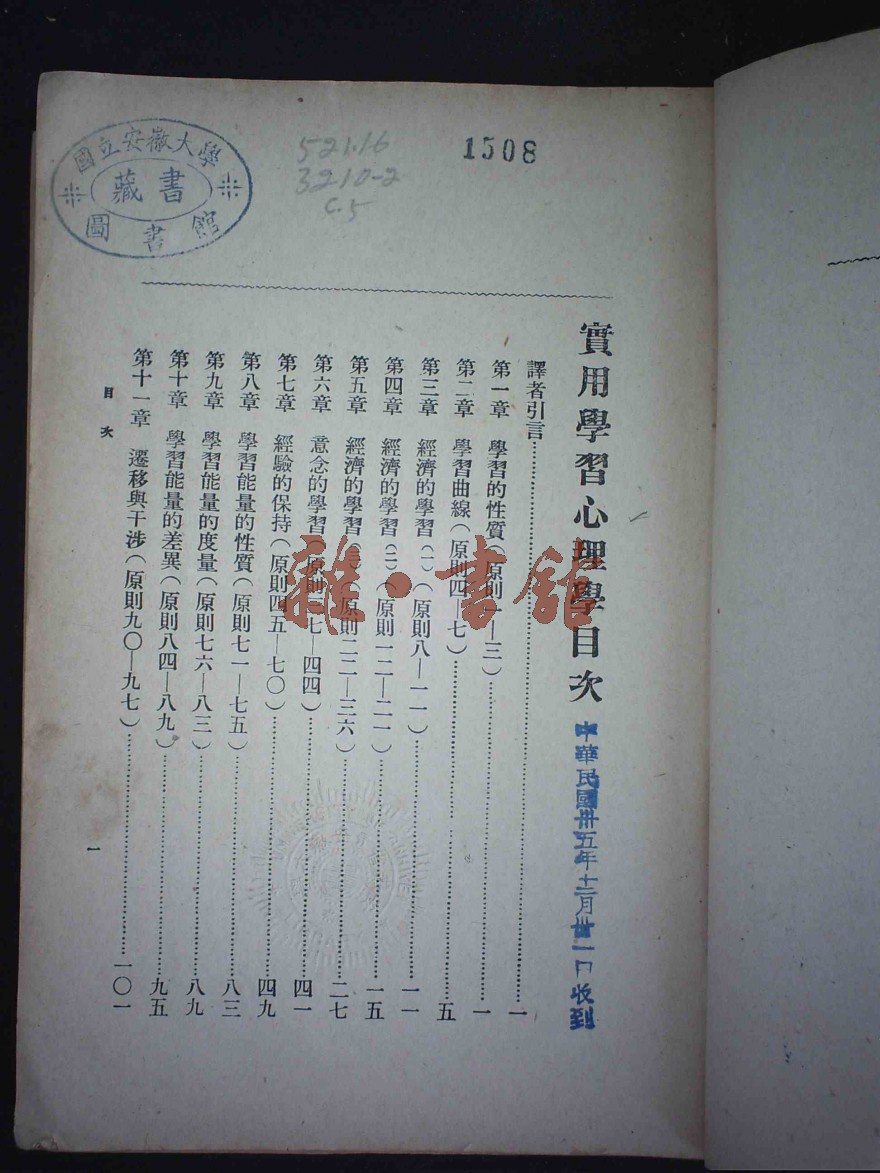 國立安徽大學
藏書
圖書館
521.16
3210-2
c.5
1508
實用學習心理學目次
中華民國卅五年十二月卅一日收到
譯者引言……一
第一章 學習的性質(原則一—三)……一
第二章 學習曲線(原則四—七)……五
第三章 經濟的學習(一)(原則八—一一)……一一
第四章 經濟的學習(二)(原則一二—二一)……一五
第五章 經濟的學習(三)(原則二二—三六)……二七
第六章 意念的學習(原則三七—四四)……四一
第七章 經驗的保持(原則四五—七〇)……四九
第八章 學習能量的性質(原則七一—七五)……八三
第九章 學習能量的度量(原則七六—八三)……八九
第十章 學習能量的差異(原則八四—八九)……九五
第十一章 遷移與干涉(原則九〇—九七)……一〇一
目次
一
雜·書館